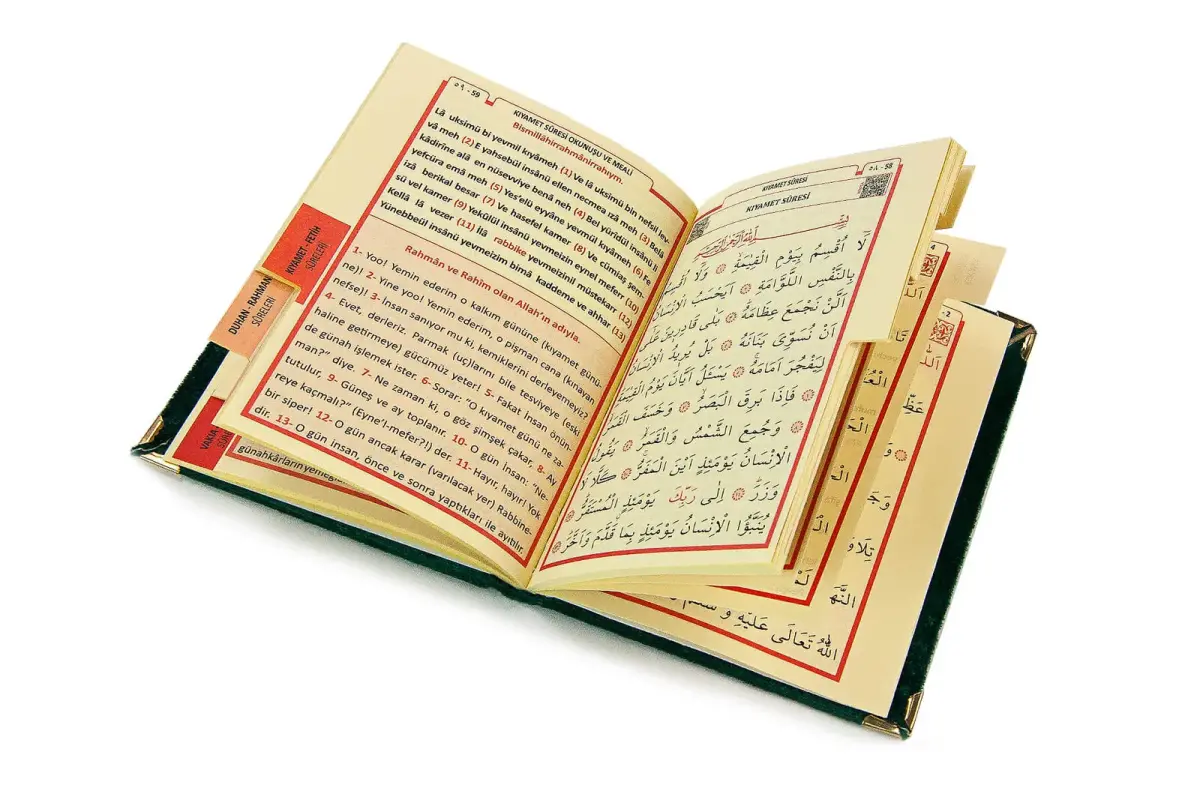 ٥٩ - 59
KIYAMET SÛRESİ OKUNUŞU VE MEALİ
Bismillâhirrahmânirrahıym.
Lâ uksimü bi yevmil kıyâmeh (1) Ve lâ uksimü bin nefsil lev-
vâ meh (2) E yahsebül insânü ellen necmea ızâ meh (3) Belâ
kâdirîne alâ en nüsevviye benâ neh (4) Bel yürîdül insânü li
yefcüra emâ meh (5) Yes'elü eyyâne yevmül kıyâmeh (6) Fe
izâ berikal besar (7) Ve hasefel kamer (8) Ve cümiaş şem-
sü vel kamer (9) Yekûlül insânü yevmeizin eynel meferr (10)
Kellâ lâ vezer (11) İlâ rabbike yevmeizinil müstekarr (12)
Yünebbeül insânü yevmeizim bimâ kaddeme ve ahhar (13)
Rahmân ve Rahîm olan Allah'ın adıyla.
1- Yoo! Yemin ederim o kalkım gününe (kıyamet günü-
ne)! 2- Yine yoo! Yemin ederim, o pişman cana (kınayan
nefse)! 3- İnsan sanıyor mu ki, kemiklerini derleyemeyiz?
4- Evet, derleriz. Parmak (uç)larını bile tesviyeye (eski
haline getirmeye) gücümüz yeter! 5- Fakat İnsan önün-
de günah işlemek ister. 6- Sorar: "O kıyamet günü ne za-
man?" diye. 7- Ne zaman ki, o göz şimşek çakar, 8- Ay
tutulur, 9- Güneş ve ay toplanır. 10- O gün İnsan: "Ne-
reye kaçmalı?" (Eyne'l-mefer?!) der. 11- Hayır, hayır! Yok
bir siper! 12- O gün ancak karar (varılacak yer) Rabbine-
dir. 13- O gün insan, önce ve sonra yaptıkları ile ayıtılır.
KIYAMET - FETİH
SÛRELERİ
DUHAN - RAHMAN
SÛRELERİ
VAKIA
günahkârların
٥٨ - 58
KIYAMET SÛRESİ
KIYAMET SÛRESİ
لَا اُقْسِمُ بِيَوْمِ الْقِيٰمَةِ وَلَا اُقْسِمُ
بِالنَّفْسِ اللَّوَّامَةِ اَيَحْسَبُ الْاِنْسَانُ
اَلَّنْ نَجْمَعَ عِظَامَهُ بَلٰى قَادِرِينَ عَلٰى
اَنْ نُسَوِّىَ بَنَانَهُ بَلْ يُرِيدُ الْاِنْسَانُ
لِيَفْجُرَ اَمَامَهُ يَسْـَٔلُ اَيَّانَ يَوْمُ الْقِيٰمَةِ
فَاِذَا بَرِقَ الْبَصَرُ وَخَسَفَ الْقَمَرُ
وَجُمِعَ الشَّمْسُ وَالْقَمَرُ يَقُولُ
الْاِنْسَانُ يَوْمَئِذٍ اَيْنَ الْمَفَرُّ كَلَّا لَا
وَزَرَ اِلٰى رَبِّكَ يَوْمَئِذٍ الْمُسْتَقَرُّ
يُنَبَّؤُا الْاِنْسَانُ يَوْمَئِذٍ بِمَا قَدَّمَ وَاَخَّرَ
اللّٰهُ تَعَالٰى عَلَيْهِ وَسَلَّمَ